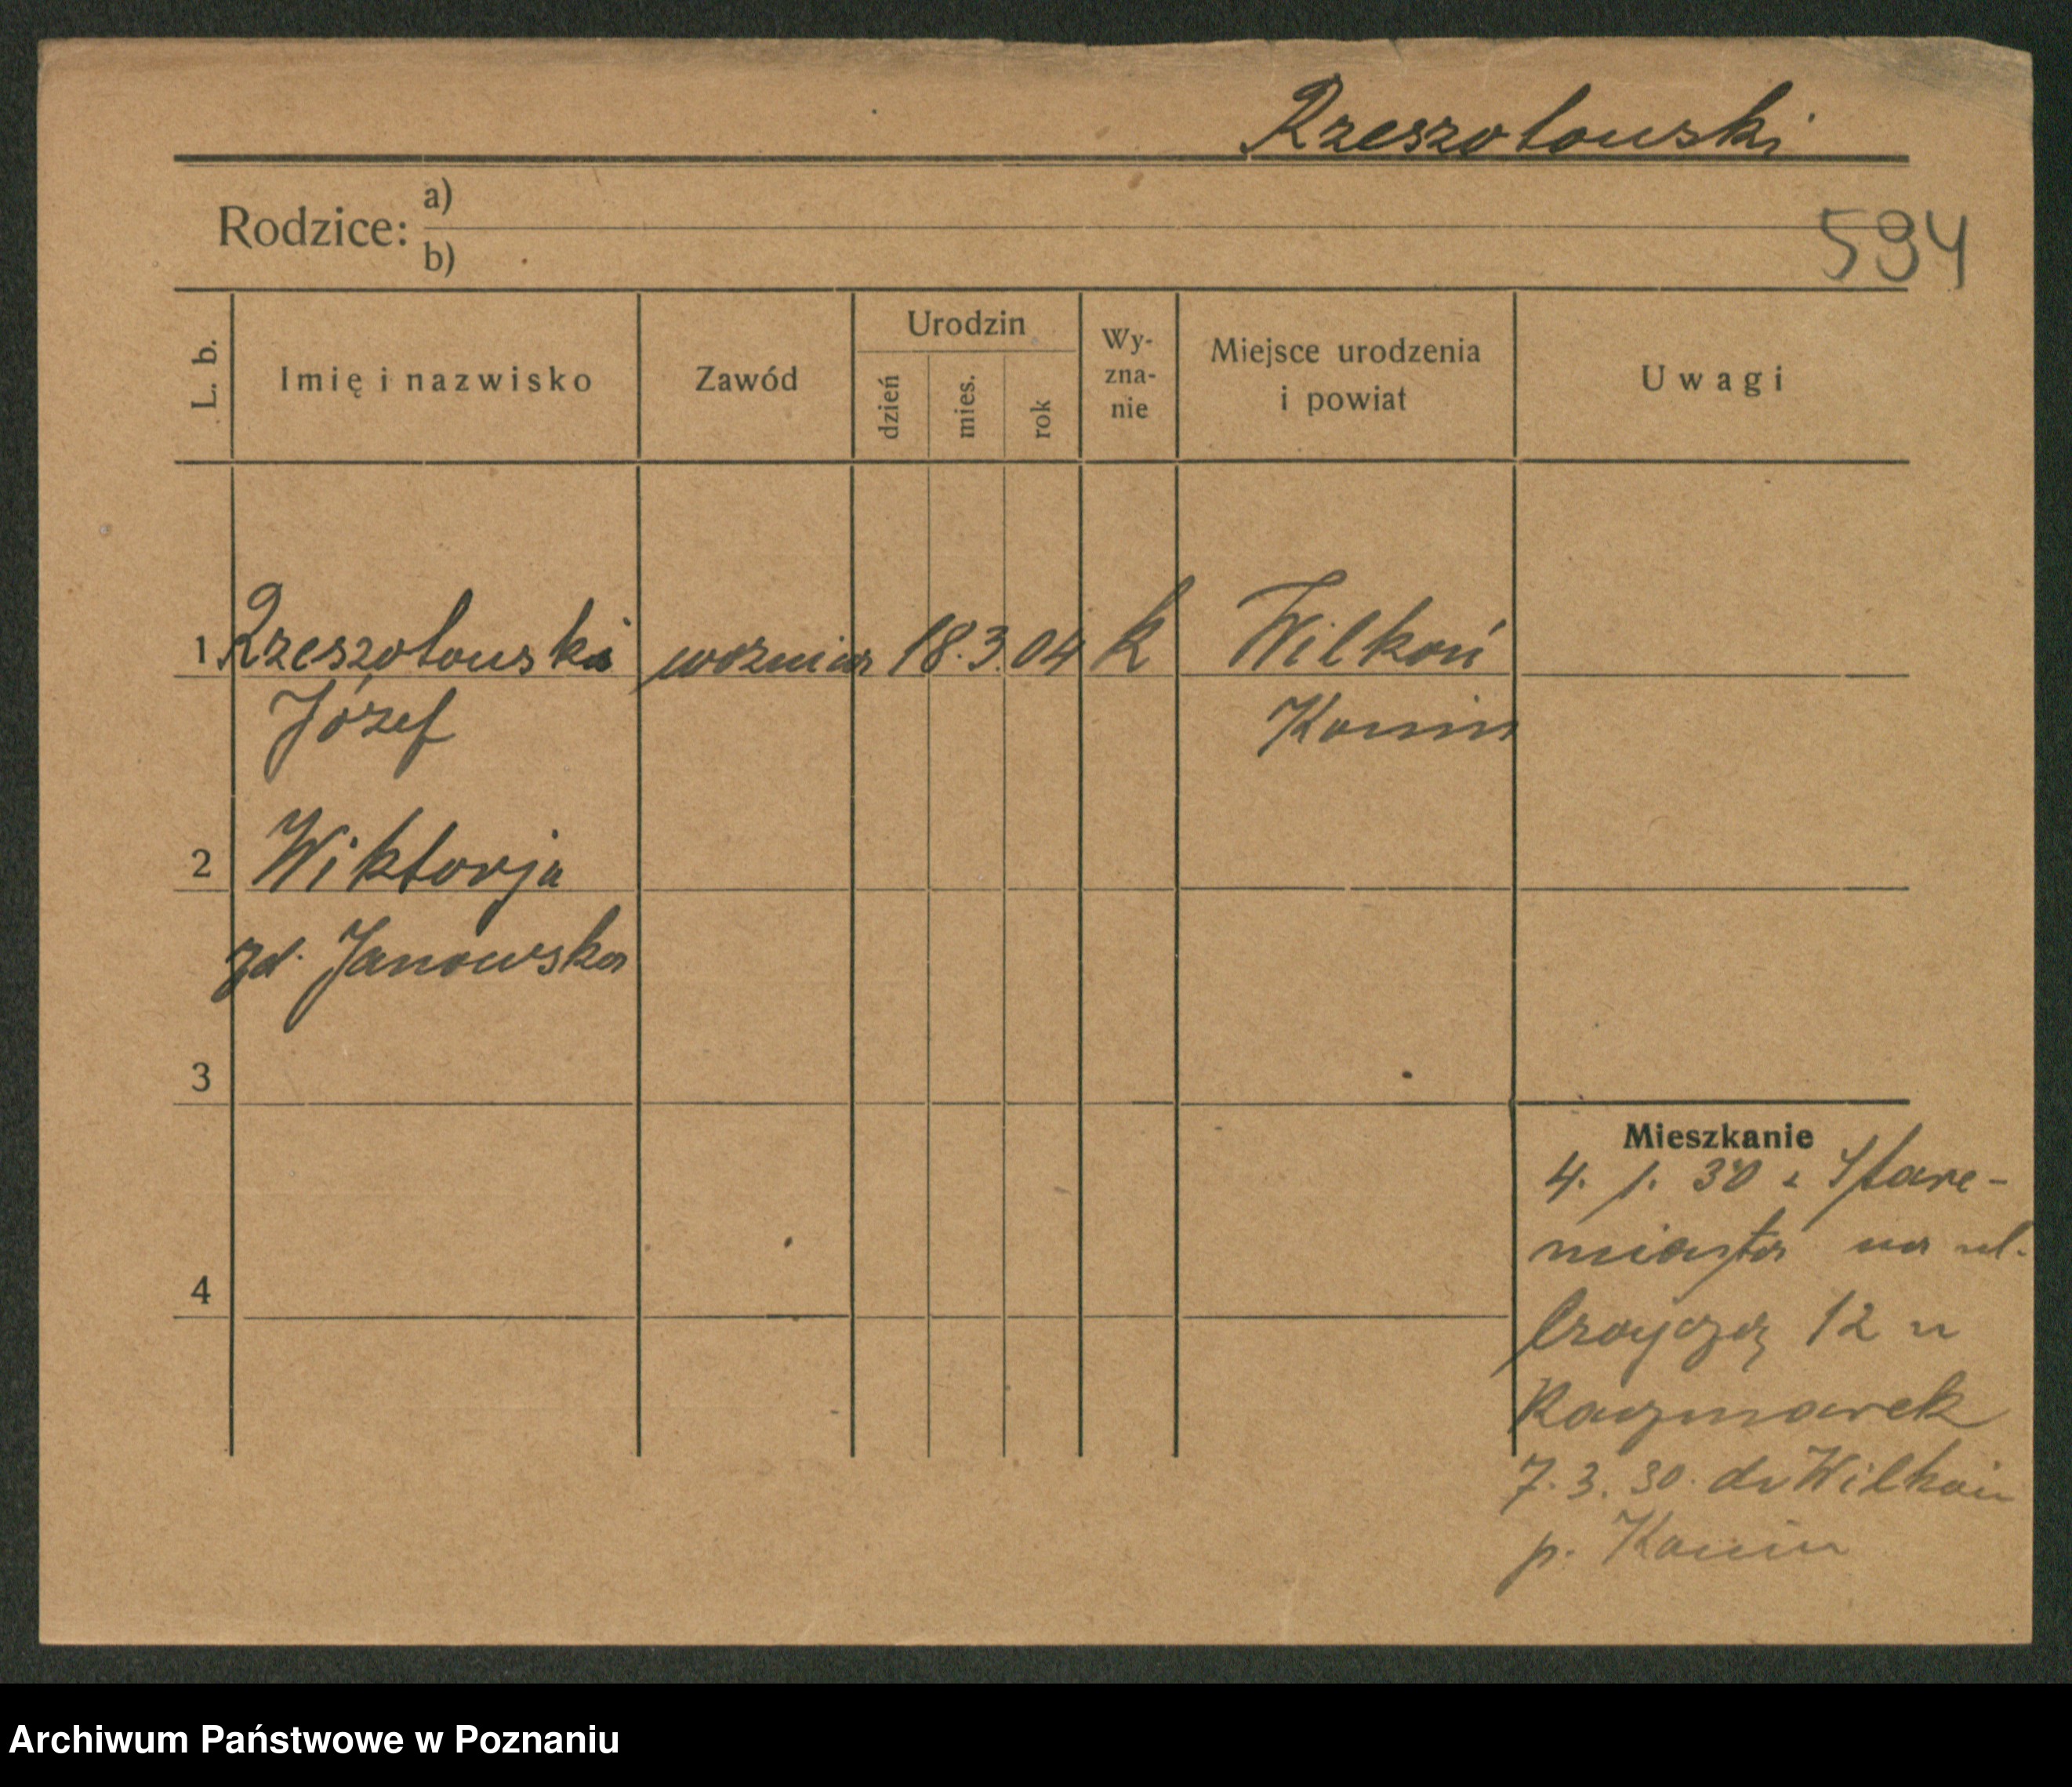 Rzeszotowski
Rodzice: a)
b)
594
L. b.
Imię i nazwisko
Zawód
Urodzin
dzień
mies.
rok
Wy-
zna-
nie
Miejsce urodzenia
i powiat
Uwagi
1 Rzeszotowski 18.3.04 k Wilkoń
Józef Konin
2 Wiktorja
zd. Janowska
3
4
Mieszkanie
4. 1. 30 z Stare-
miasta na ul.
12 u
Kaczmarek
7. 3. 30. do Wilkoń
p. Konin
Archiwum Państwowe w Poznaniu